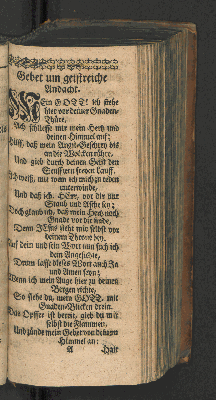 Gebet um geistreiche
Andacht.
MEin GOTT! ich stehe
hier vor deiner Gnaden-
Thüre,
Ach schliesse mir mein Hertz und
deinen Himmel auf;
Hilff, daß mein Angst-Geschrey biß
an die Wolcken rühre,
Und gieb durch deinen Geist den
Seufftzern freyen Lauff.
Ich weiß, mit wem ich mich zu reden
unterwinde,
Und daß ich, HErr, vor dir nur
Staub und Asche sey;
Doch glaub ich, daß mein Hertz noch
Gnade vor dir finde,
Denn JEsus steht mir selbst vor
deinem Throne bey.
Auf dein und sein Wort nun such ich
dein Angesichte,
Drum lasse dieses Wort auch Ja
und Amen seyn;
Wenn ich mein Auge hier zu deinen
Bergen richte,
So siehe du, mein GOTT, mit
Gnaden-Blicken drein.
Das Opffer ist bereit, gieb du mir
selbst die Flammen,
Und zünde mein Gebet von deinem
Himmel an:
A Halt